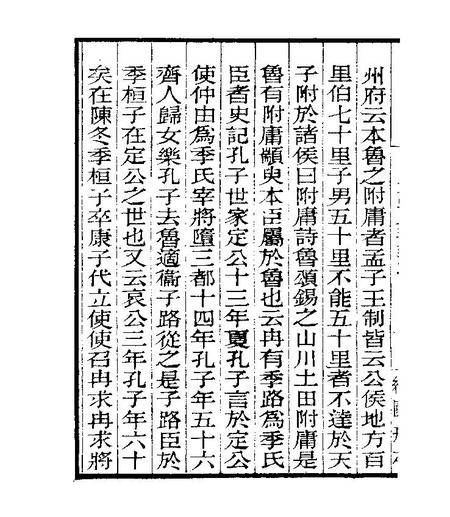 州府云本魯之附庸者孟子王制皆云公侯地方百
里伯七十里子男五十里不能五十里者不達於天
子附於諸侯曰附庸詩魯頌錫之山川土田附庸是
魯有附庸顓臾本臣屬於魯也云冉有季路為季氏
臣者史記孔子世家定公十三年夏孔子言於定公
使仲由為季氏宰將墮三都十四年孔子年五十六
齊人歸女樂孔子去魯適衞子路從之是子路臣於
季桓子在定公之世也又云哀公三年孔子年六十
矣在陳冬季桓子卒康子代立使使召冉求冉求將